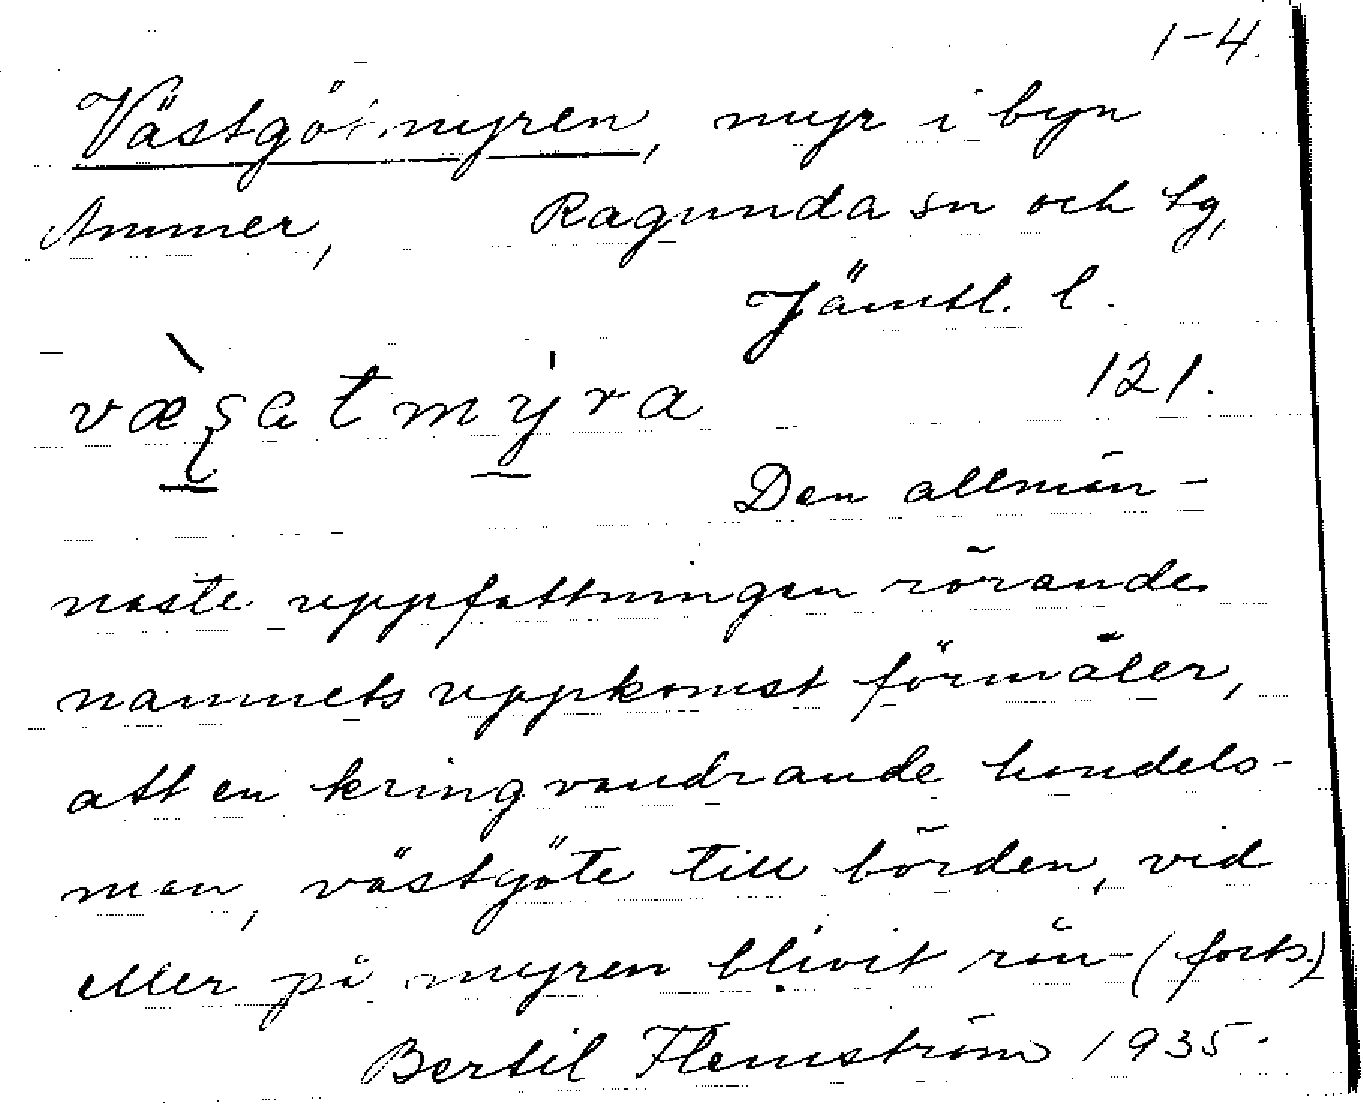 1-4.
Västgötmyren, myr i byn
Ammer, Ragunda sn och tg,
Jämtl. l.
121.
Den allmän-
naste uppfattningen rörande
namnets uppkomst förmäler,
att en kringvandrande handels-
man, västgöte till börden, vid
eller på myren blivit rån- (forts.)
Bertil Flemström 1935.